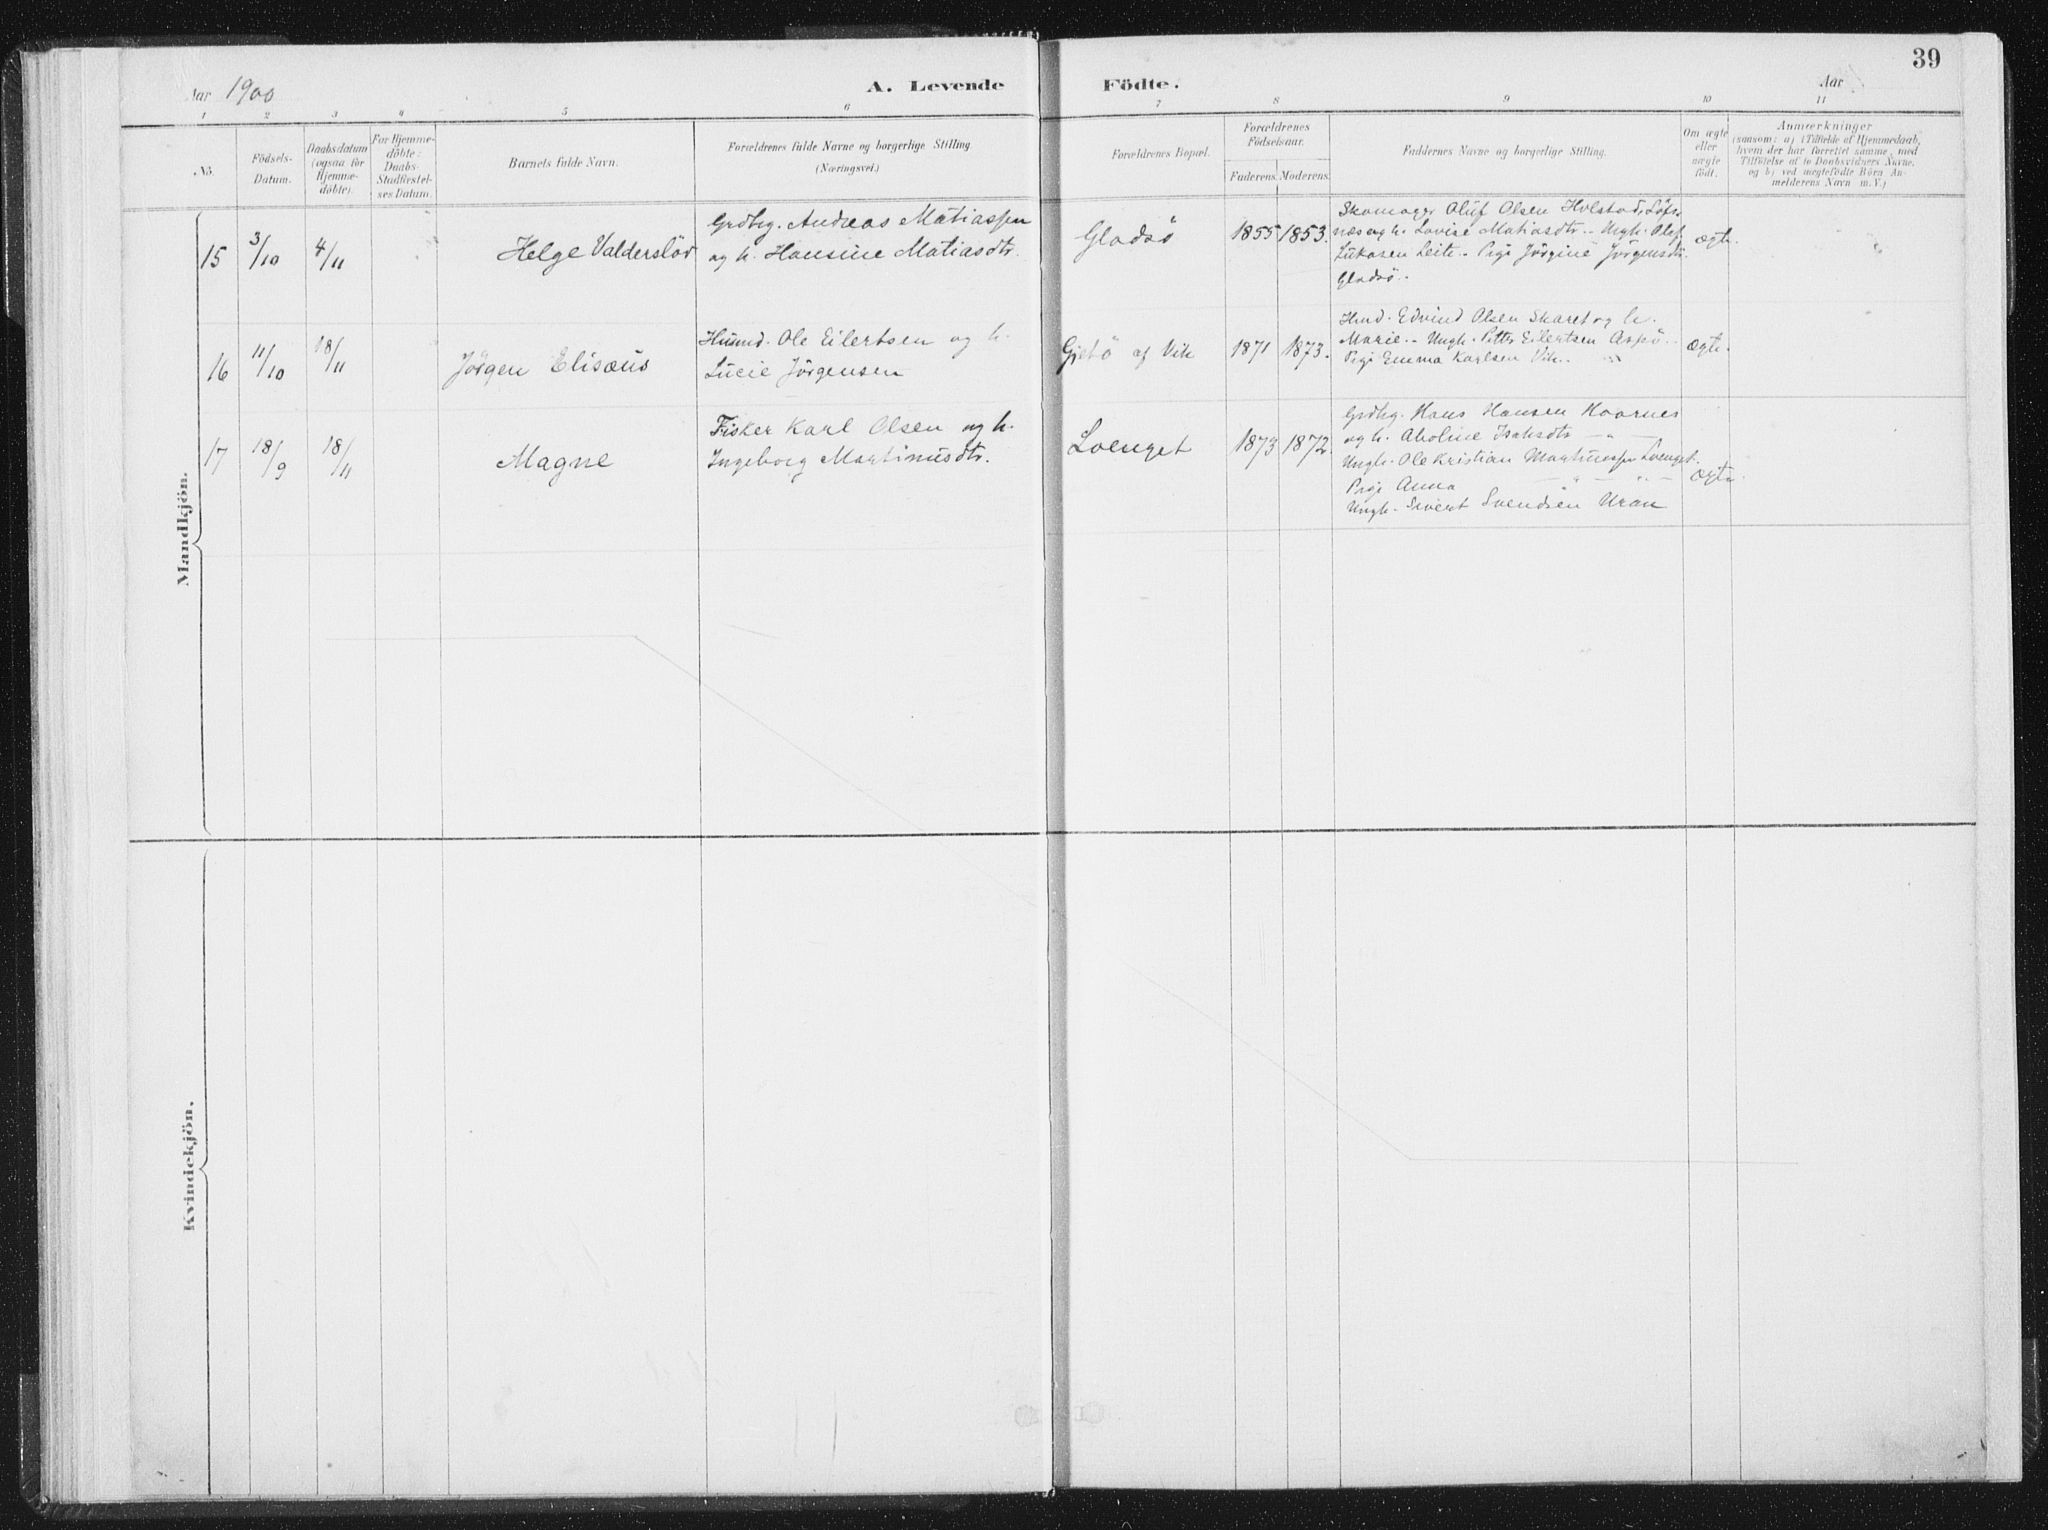 39
Aar 1900
A. Levende Födte.
Aar
1 2 3 4 5 6 7 8 9 10 11
No.
Födsels-
Datum.
Daabsdatum
(ogsaa for
Hjemme-
döbte).
For Hjemme-
döbte:
Daabs-
Stadfæstel-
ses Datum.
Barnets fulde Navn.
Forældrenes fulde Navne og borgerlige Stilling
(Næringsvei.)
Forældrenes Bopæl.
Forældrenes
Födselsaar.
Faderens. Moderens.
Faddernes Navne og borgerlige Stilling.
Om ægte
eller
uægte
födt.
Anmærkninger
(saasom: a) i Tilfælde af Hjemmedaab,
hvem der har forrettet samme, med
Tilföielse af to Daabsvidners Navne,
og b) ved uægtefödte Börn An-
melderens Navn m. V.)
Mandkjön.
15 3/10 4/11
Helge Valderslöv
Grdbrg. Andreas Matiassen
og h. Hansine Matiasdtr.
Gladsö
1855 1853.
Skomager Oluf Olsen Holstad, Löfs-
næs og h. Lovise Matiasdtr. - Ungk. Olaf
Lukasen Leite - Pige Jörgine Jörgensdtr.
Gladsö.
ægte.
16 11/10 18/11
Jörgen Elisæus
Husmd. Ole Eilertsen og h.
Lucie Jörgensen
Gjetö af Vik
1871 1873.
Husmd. Edvind Olsen Skaret og h.
Marie. - Ungk. Petter Eilertsen Aspö.
Pige Emma Karlsen Vik.
ægte.
17 18/9 18/11
Magne
Fisker Karl Olsen og h.
Ingeborg Martinusdtr.
Loenget
1873 1872.
Grdbrg. Hans Hansen Kaarnes
og h. Aholine Isaksdtr - " -
Ungk. Ole Kristian Martinussen Loenget.
Pige Anna - " - " -
Ungk. Sivert Svendsen Uran
ægte.
Kvindekjön.